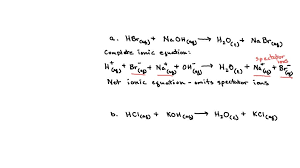 a. HBr(aq) + NaOH(aq) → H₂O(l) + NaBr(aq)
Complete ionic equation:
spectator ions
H⁺(aq) + Br⁻(aq) + Na⁺(aq) + OH⁻(aq) → H₂O(l) + Na⁺(aq) + Br⁻(aq)
Net ionic equation - omits spectator ions
b. HCl(aq) + KOH(aq) → H₂O(l) + KCl(aq)